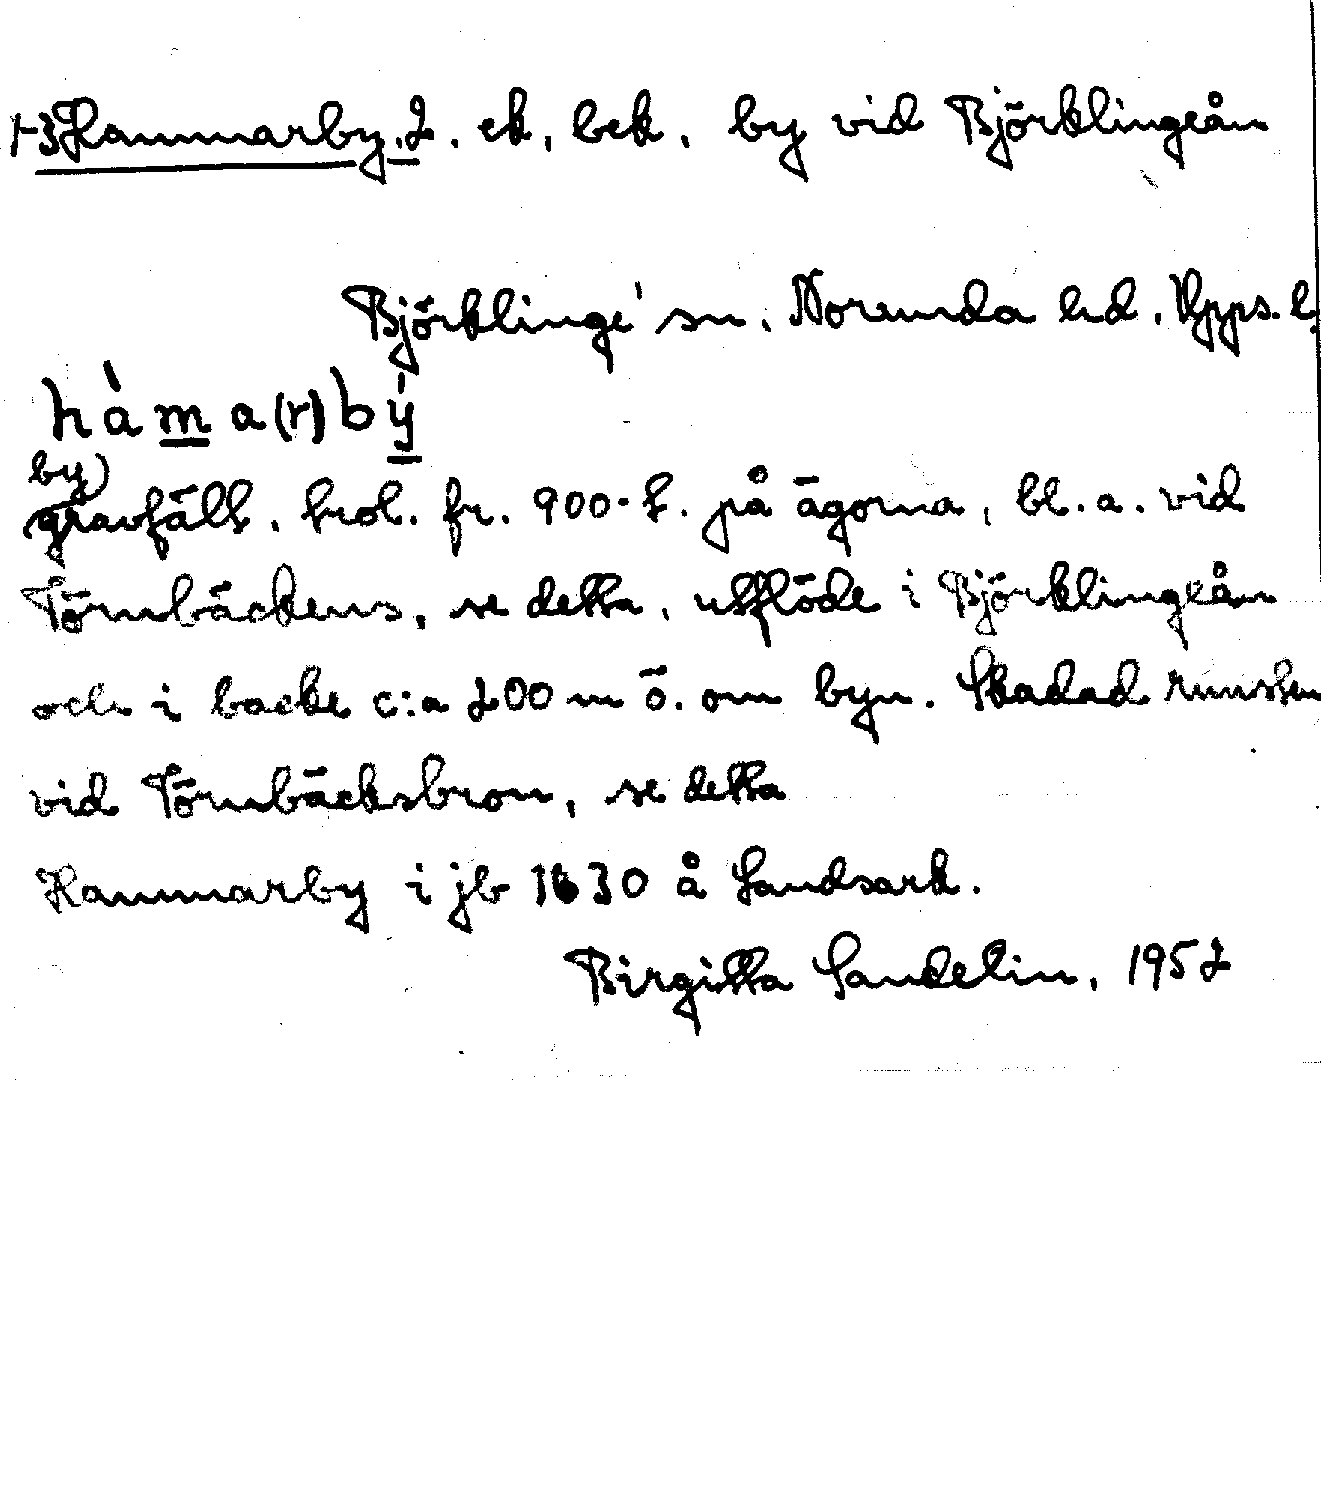 1-3 Hammarby, 2. ek, bek, by vid Björklingeån
Björklinge sn. Norunda hd. Upps. l.
hàma(r)bý
by)
gravfält, trol. fr. 900-t. på ägorna, bl.a. vid
Törnbäckens, se detta, utflöde i Björklingeån
och i backe c:a 200 m ö. om byn. Skadad runsten
vid Törnbäcksbron, se detta
Hammarby i jb 1630 å Landsark.
Birgitta Sandelin, 1952